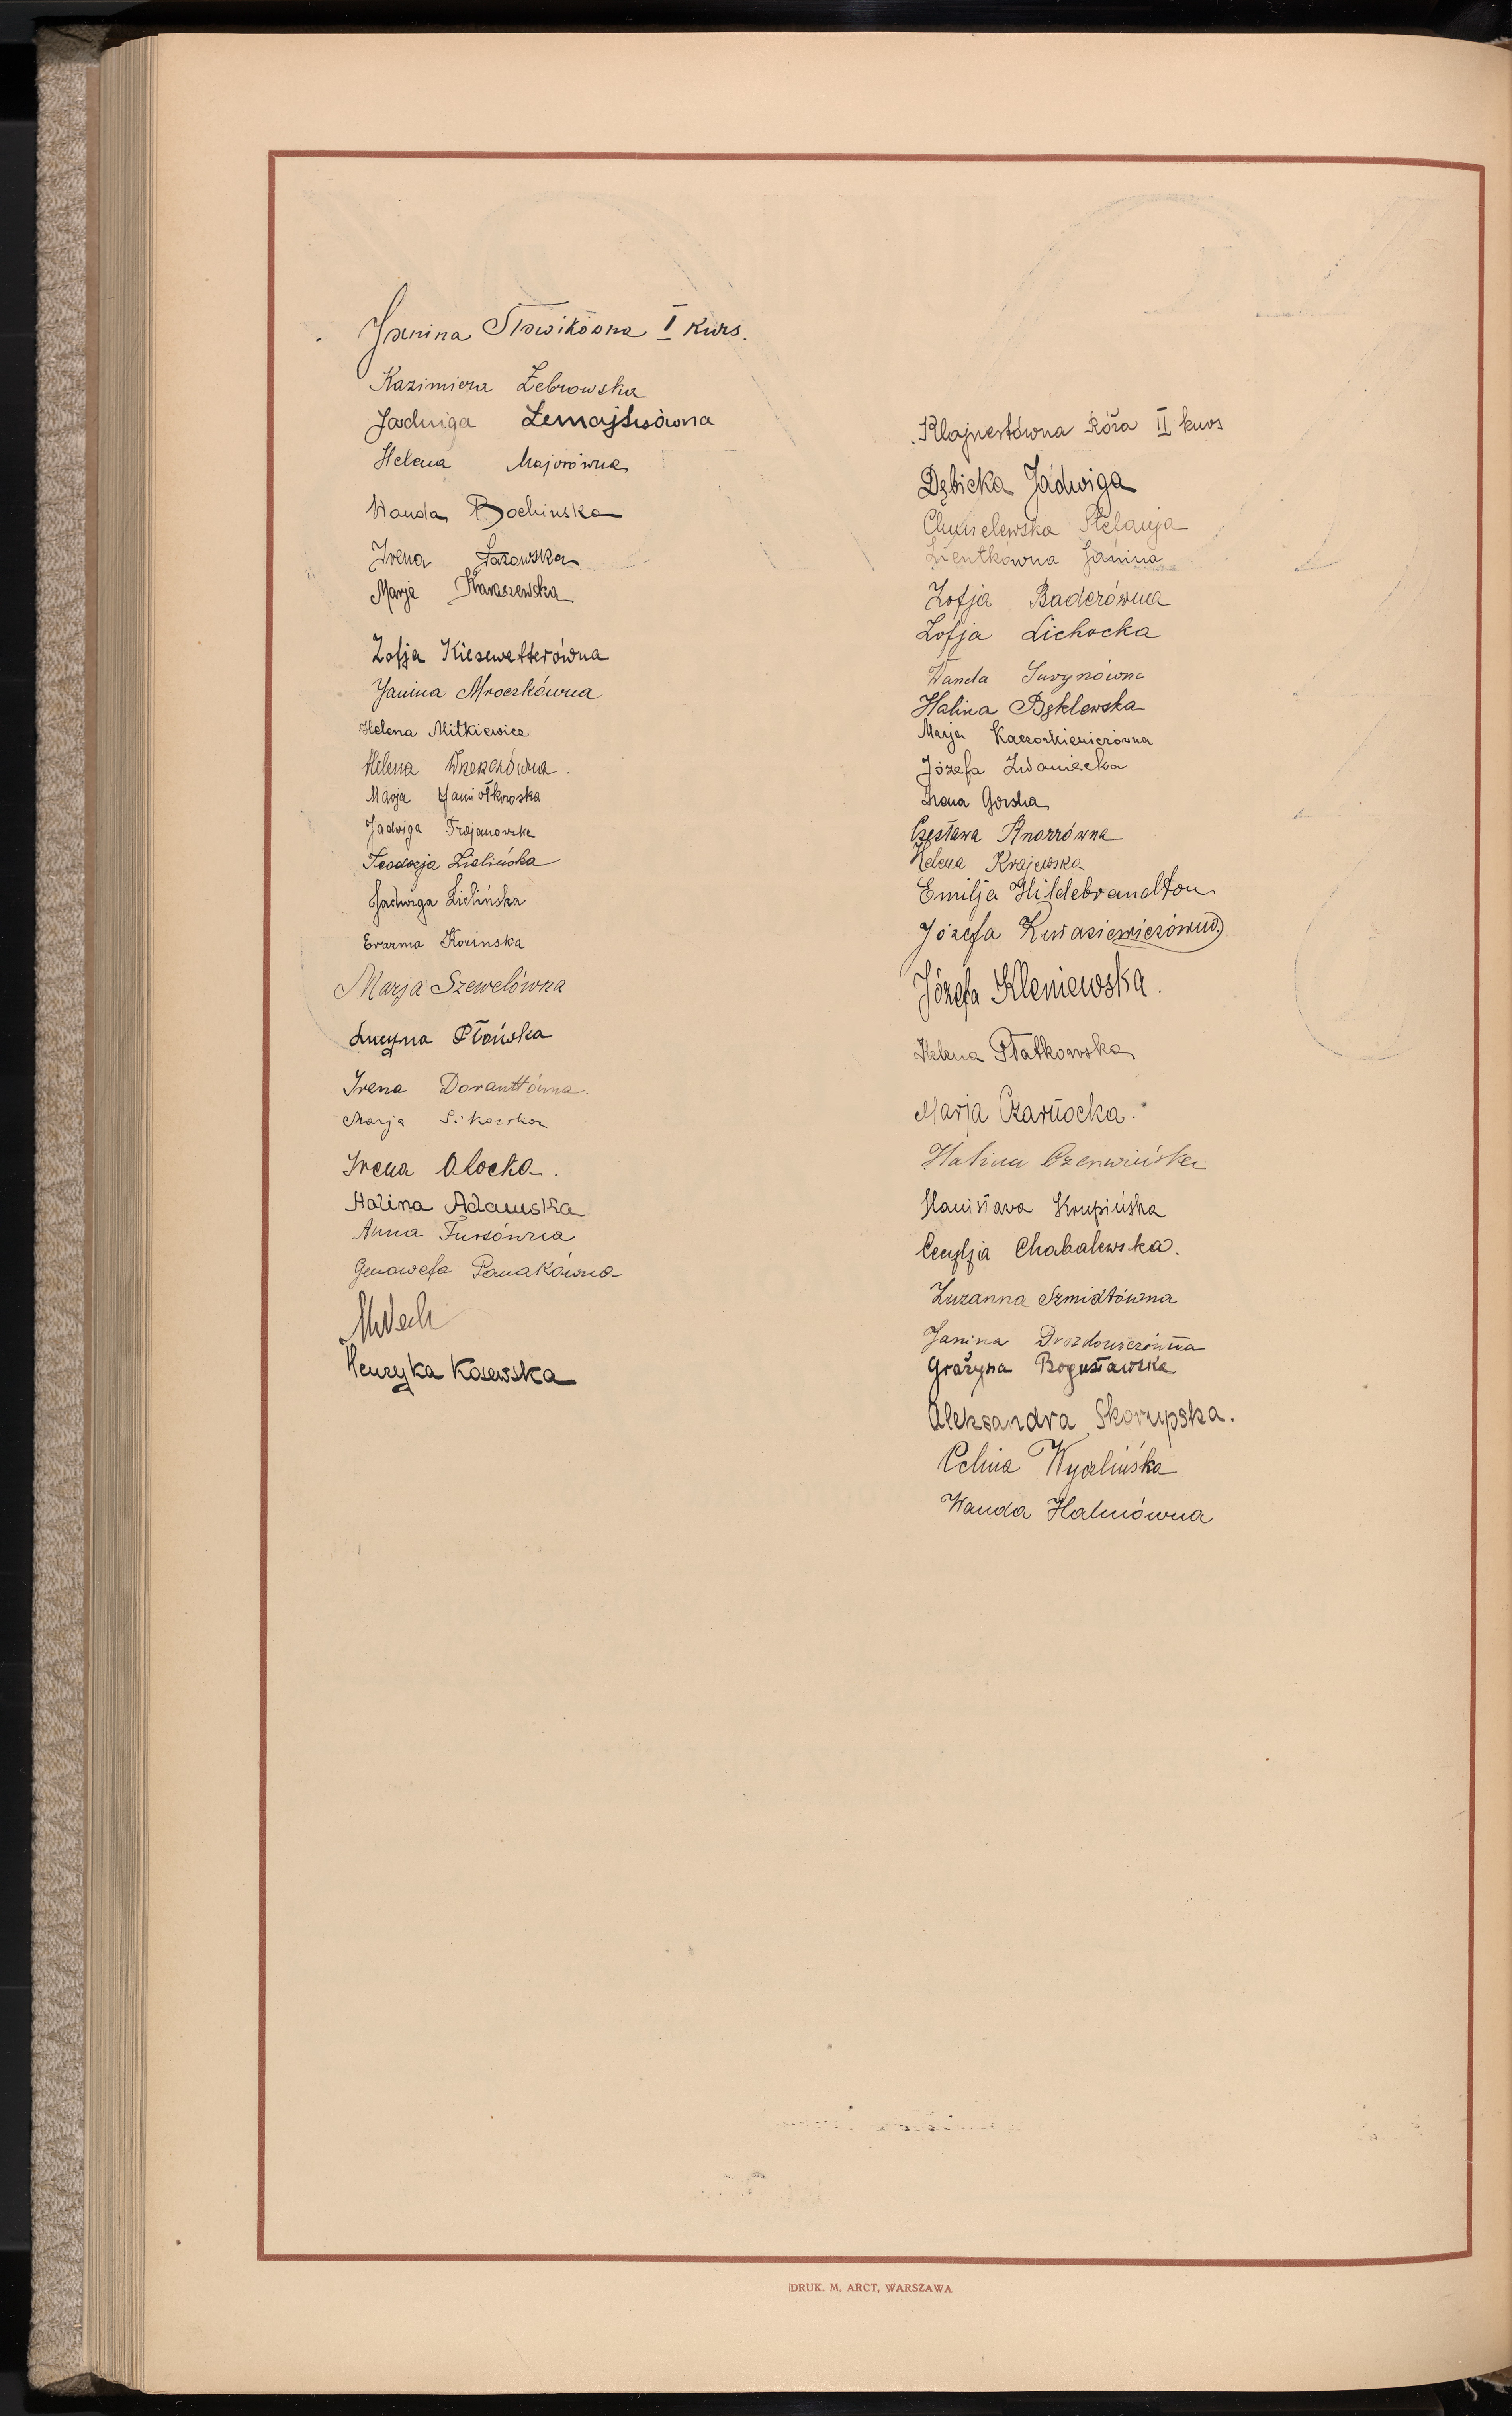 Janina Sławikówna I kurs.
Kazimiera Żebrowska
Jadwiga Żemajtisówna
Helena Majorówna
Wanda Bochinska
Irena Łazowska
Marja Karaszewska
Zofja Kiesewetterówna
Janina Mroczkówna
Helena Mitkiewicz
Helena
Marja Jamiołkowska
Jadwiga Trojanowska
Teodozja Zielińska
Jadwiga Zielińska
Kozinska
Marja Szewelówna
Lucyna Płońska
Irena Doranttówna.
Marja Sikorska
Irena Olocka.
Halina Adamska
Anna Fursówna
Genowefa Panakówna
Henryka Kosewska
Klajnertówna Róża II kurs
Dębicka Jadwiga
Chmielewska Stefanja
Zientkówna Janina
Zofja Baderówna
Zofja Lichocka
Wanda Surynówna
Halina Bęklewska
Marja Kaczorkiewiczówna
Józefa Iwaniecka
Irena Gorska
Czesława Knorrówna
Helena Krajewska
Emilja Hildebrandton
Józefa Kwasiewiczówna
Józefa Kleniewska.
Helena Płatkowska
Marja Czarnocka.
Halina Czerwińska
Stanisława Krupińska
Cecylja Chabalewska.
Zuzanna Szmidtówna
Janina Drozdowiczówna
Grażyna Bogusławska
Aleksandra Skorupska.
Celina Wyczlińska
Wanda Halmówna
DRUK. M. ARCT, WARSZAWA